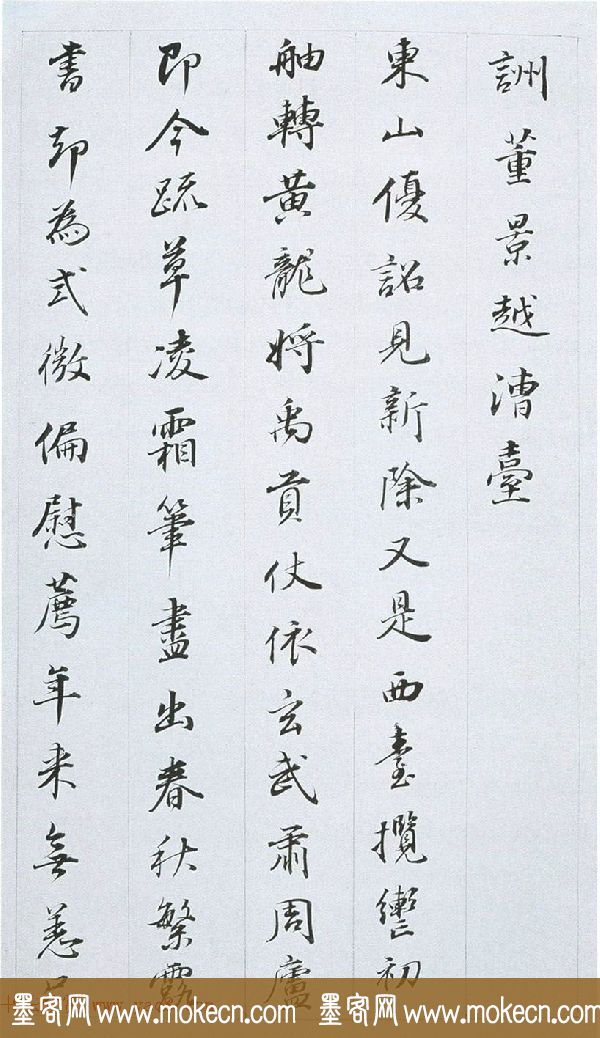 詶董景越漕臺
東山優詔見新除又是西臺攬轡初
舳轉黃龍將禹貢仗依玄武肅周廬
即今疏草凌霜筆盡出春秋繁露
書却為式微偏慰薦年来無恙
墨客网 www.mokecn.com 墨客网 www.mokecn.com